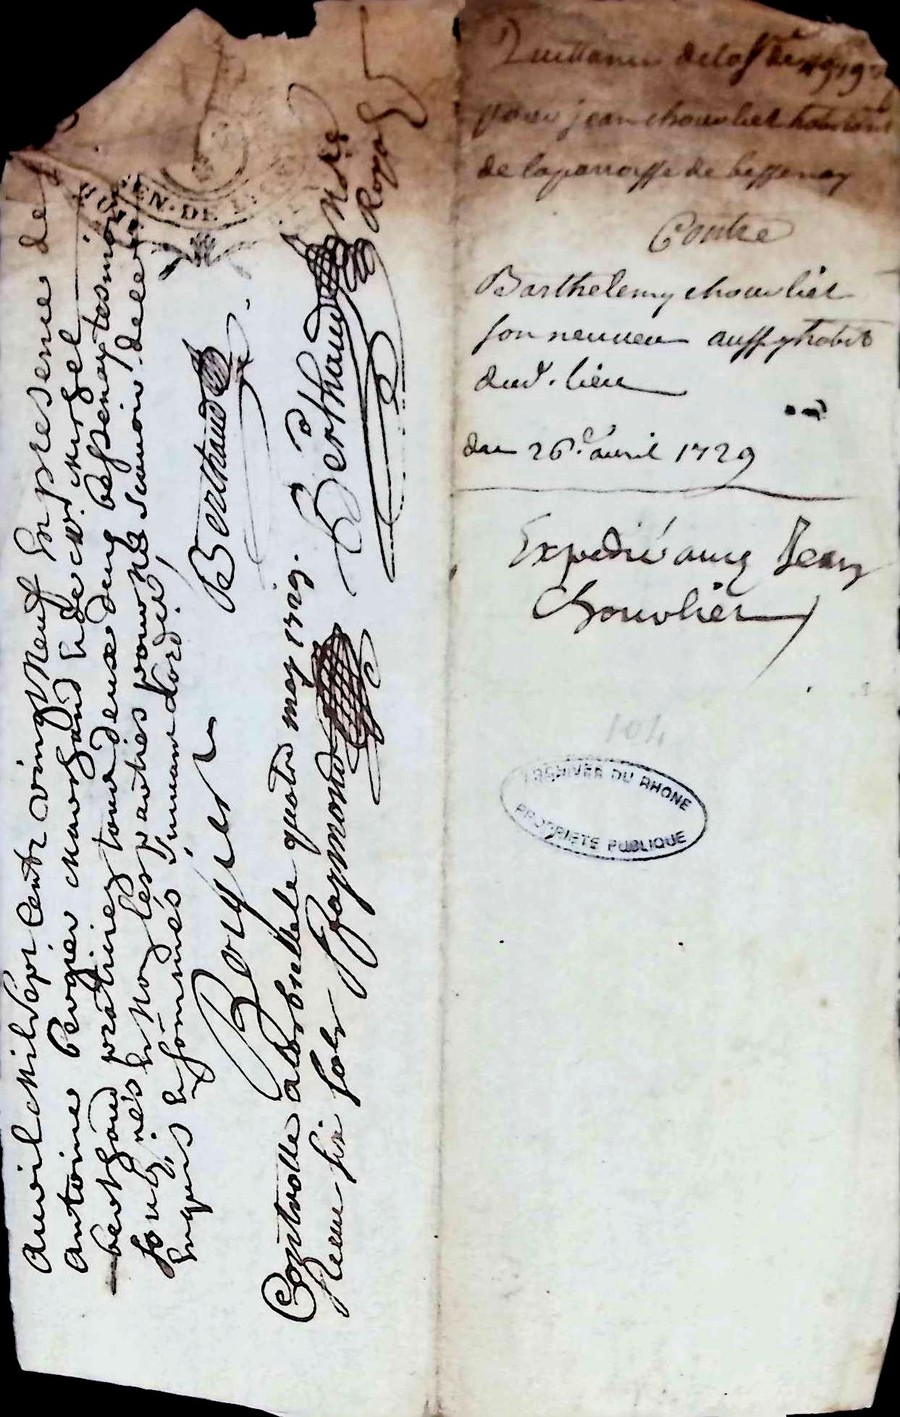 avril mil sept cents vingt neuf En presence de
antoine Bergier marchand
berthaud praticien tous deux de bessenay tesmoins
soubsignés & non les parties pour ne scavoir de ce
enquis & sommés suivant l'ordce,
Bergier Berthaud
Controllé a Larbrelle quatre may 1729.
Receu six sols Raymond Berthaud Nore
Royal
GEN. DE LYON
Quittance de la so de 49 l 19 s
pour jean chouvliet habitant
de la parroisse de bessenay
Contre
Barthelemy chouvliet
son neuveu aussy habit
dud. lieu
du 26e avril 1729
Expedié aud Jean
Chouvliet
104
ARCHIVES DU RHONE
PROPRIETE PUBLIQUE